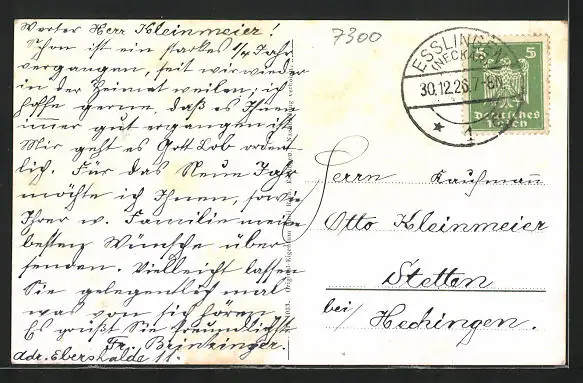 Werter Herr Kleinmeier!
Schon ist ein starkes 1/4 Jahr
vergangen, seit wir wieder
in der Heimat weilen; ich
hoffe gerne, daß es Ihnen
immer gut ergangen ist.
Mir geht es Gott Lob ordent
lich. Für das Neue Jahr
möchte ich Ihnen, sowie
Ihrer w. Familie meine
besten Wünsche über-
senden. Vielleicht lassen
Sie gelegentlich mal
was von sich hören.
Es grüßt Sie freundlichst
Fr. Brintzinger.
Adr. Ebershalde 11.
7300
ESSLINGEN
(NECKAR)
30.12.26. 7-8N.
* 1
5 5
Deutsches
Reich
Herrn Kaufmann
Otto Kleinmeier
Stetten
bei Hechingen.